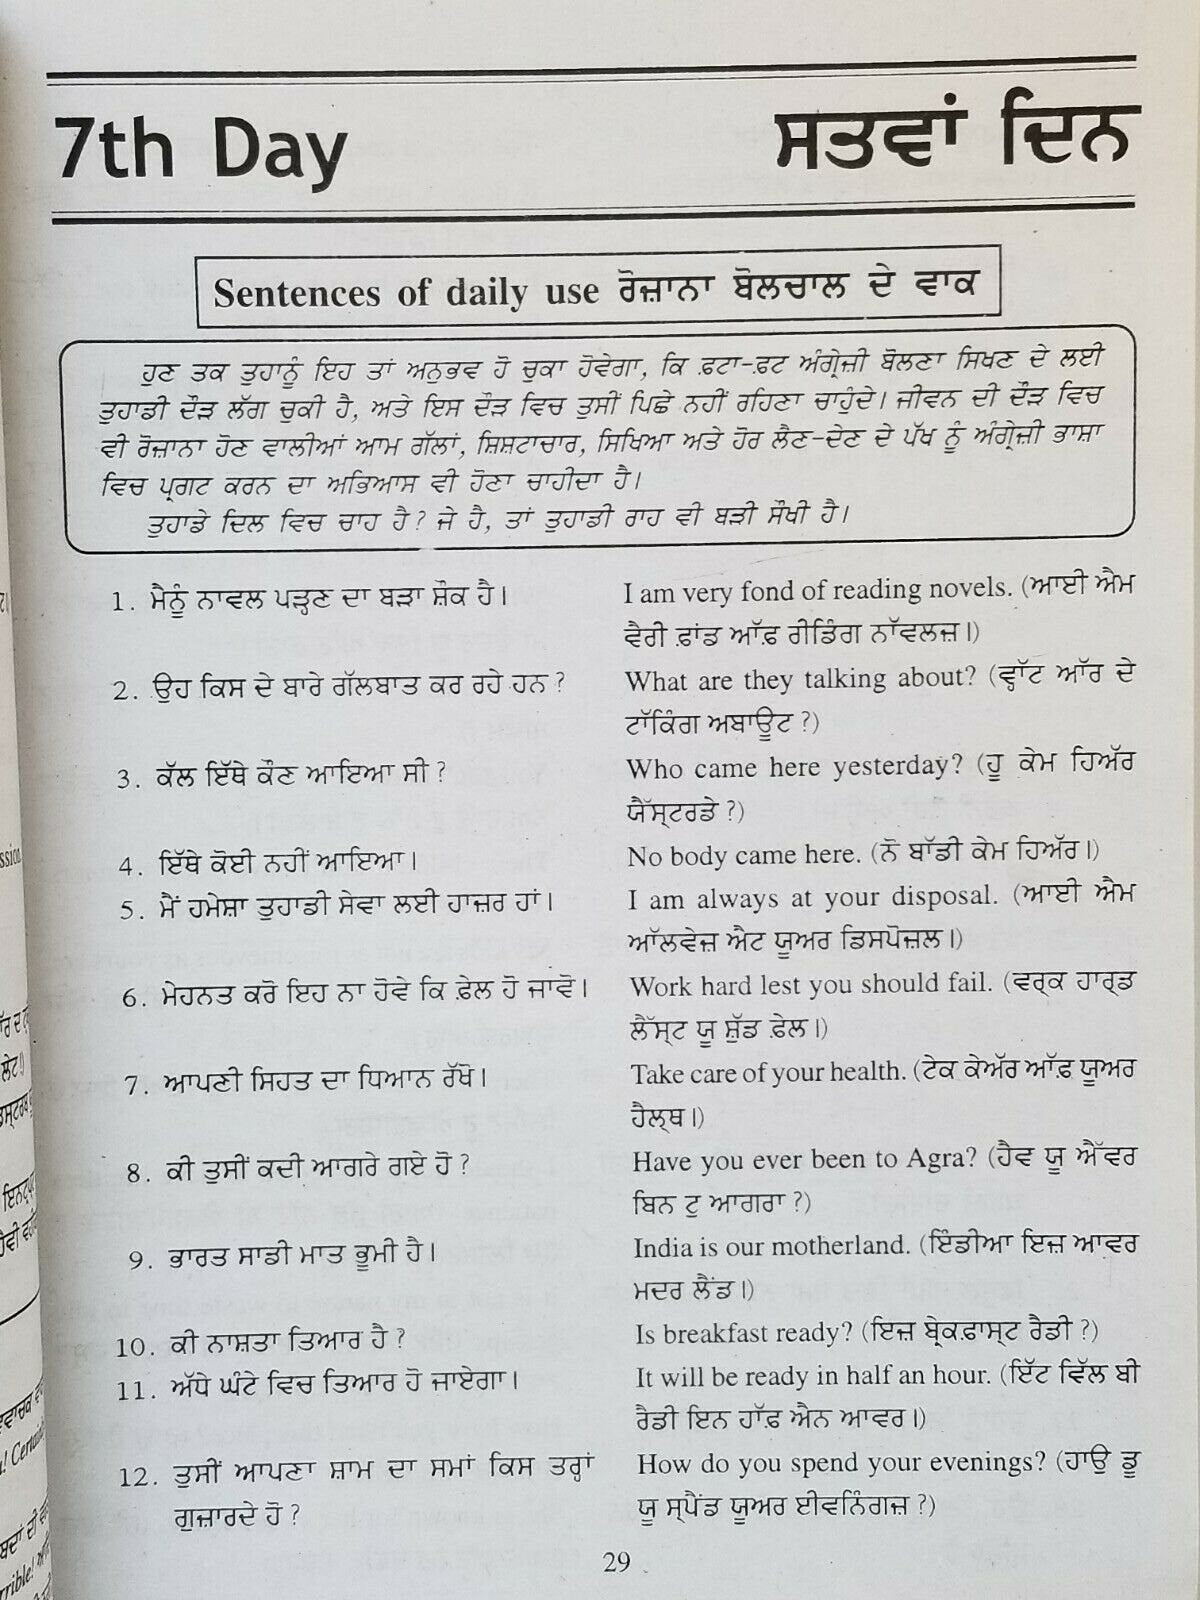 7th Day ਸਤਵਾਂ ਦਿਨ
Sentences of daily use ਰੋਜ਼ਾਨਾ ਬੋਲਚਾਲ ਦੇ ਵਾਕ
ਹੁਣ ਤਕ ਤੁਹਾਨੂੰ ਇਹ ਤਾਂ ਅਨੁਭਵ ਹੋ ਚੁਕਾ ਹੋਵੇਗਾ, ਕਿ ਫ਼ਟਾ-ਫ਼ਟ ਅੰਗ੍ਰੇਜ਼ੀ ਬੋਲਣਾ ਸਿਖਣ ਦੇ ਲਈ
ਤੁਹਾਡੀ ਦੌੜ ਲੱਗ ਚੁਕੀ ਹੈ, ਅਤੇ ਇਸ ਦੌੜ ਵਿਚ ਤੁਸੀਂ ਪਿਛੇ ਨਹੀਂ ਰਹਿਣਾ ਚਾਹੁੰਦੇ। ਜੀਵਨ ਦੀ ਦੌੜ ਵਿਚ
ਵੀ ਰੋਜ਼ਾਨਾ ਹੋਣ ਵਾਲੀਆਂ ਆਮ ਗੱਲਾਂ, ਸ਼ਿਸ਼ਟਾਚਾਰ, ਸਿਖਿਆ ਅਤੇ ਹੋਰ ਲੈਣ-ਦੇਣ ਦੇ ਪੱਖ ਨੂੰ ਅੰਗ੍ਰੇਜ਼ੀ ਭਾਸ਼ਾ
ਵਿਚ ਪ੍ਰਗਟ ਕਰਨ ਦਾ ਅਭਿਆਸ ਵੀ ਹੋਣਾ ਚਾਹੀਦਾ ਹੈ।
ਤੁਹਾਡੇ ਦਿਲ ਵਿਚ ਚਾਹ ਹੈ? ਜੇ ਹੈ, ਤਾਂ ਤੁਹਾਡੀ ਰਾਹ ਵੀ ਬੜੀ ਸੌਖੀ ਹੈ।
1. ਮੈਨੂੰ ਨਾਵਲ ਪੜ੍ਹਣ ਦਾ ਬੜਾ ਸ਼ੌਕ ਹੈ। I am very fond of reading novels. (ਆਈ ਐਮ
ਵੈਰੀ ਫ਼ਾਂਡ ਆੱਫ਼ ਰੀਡਿੰਗ ਨਾੱਵਲਜ਼।)
2. ਉਹ ਕਿਸ ਦੇ ਬਾਰੇ ਗੱਲਬਾਤ ਕਰ ਰਹੇ ਹਨ? What are they talking about? (ਵ੍ਹਾੱਟ ਆੱਰ ਦੇ
ਟਾੱਕਿੰਗ ਅਬਾਊਟ?)
3. ਕੱਲ ਇੱਥੇ ਕੌਣ ਆਇਆ ਸੀ? Who came here yesterday? (ਹੂ ਕੇਮ ਹਿਅੱਰ
ਯੈੱਸ੍ਟਰਡੇ?)
4. ਇੱਥੇ ਕੋਈ ਨਹੀਂ ਆਇਆ। No body came here. (ਨੋ ਬਾੱਡੀ ਕੇਮ ਹਿਅੱਰ।)
5. ਮੈਂ ਹਮੇਸ਼ਾ ਤੁਹਾਡੀ ਸੇਵਾ ਲਈ ਹਾਜ਼ਰ ਹਾਂ। I am always at your disposal. (ਆਈ ਐਮ
ਆੱਲਵੇਜ਼ ਐਟ ਯੂਅਰ ਡਿਸਪੋਜ਼ਲ।)
6. ਮੇਹਨਤ ਕਰੋ ਇਹ ਨਾ ਹੋਵੇ ਕਿ ਫ਼ੇਲ ਹੋ ਜਾਵੋ। Work hard lest you should fail. (ਵਰ੍ਕ ਹਾਰ੍ਡ
ਲੈੱਸ੍ਟ ਯੂ ਸ਼ੁੱਡ ਫ਼ੇਲ।)
7. ਆਪਣੀ ਸਿਹਤ ਦਾ ਧਿਆਨ ਰੱਖੋ। Take care of your health. (ਟੇਕ ਕੇਅੱਰ ਆੱਫ਼ ਯੂਅਰ
ਹੈਲ੍ਥ।)
8. ਕੀ ਤੁਸੀਂ ਕਦੀ ਆਗਰੇ ਗਏ ਹੋ? Have you ever been to Agra? (ਹੈਵ ਯੂ ਐੱਵਰ
ਬਿਨ ਟੁ ਆਗਰਾ?)
9. ਭਾਰਤ ਸਾਡੀ ਮਾਤ ਭੂਮੀ ਹੈ। India is our motherland. (ਇੰਡੀਆ ਇਜ਼ ਆਵਰ
ਮਦਰ ਲੈਂਡ।)
10. ਕੀ ਨਾਸ਼ਤਾ ਤਿਆਰ ਹੈ? Is breakfast ready? (ਇਜ਼ ਬ੍ਰੇਕਫ਼ਾਸ੍ਟ ਰੈਡੀ?)
11. ਅੱਧੇ ਘੰਟੇ ਵਿਚ ਤਿਆਰ ਹੋ ਜਾਏਗਾ। It will be ready in half an hour. (ਇੱਟ ਵਿੱਲ ਬੀ
ਰੈਡੀ ਇਨ ਹਾੱਫ਼ ਐਨ ਆਵਰ।)
12. ਤੁਸੀਂ ਆਪਣਾ ਸ਼ਾਮ ਦਾ ਸਮਾਂ ਕਿਸ ਤਰ੍ਹਾਂ How do you spend your evenings? (ਹਾਉ ਡੂ
ਗੁਜ਼ਾਰਦੇ ਹੋ? ਯੂ ਸ੍ਪੈਂਡ ਯੂਅਰ ਈਵਨਿੰਗਜ਼?)
29